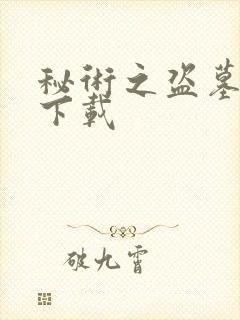 秘術之盗墓
下載
破九霄